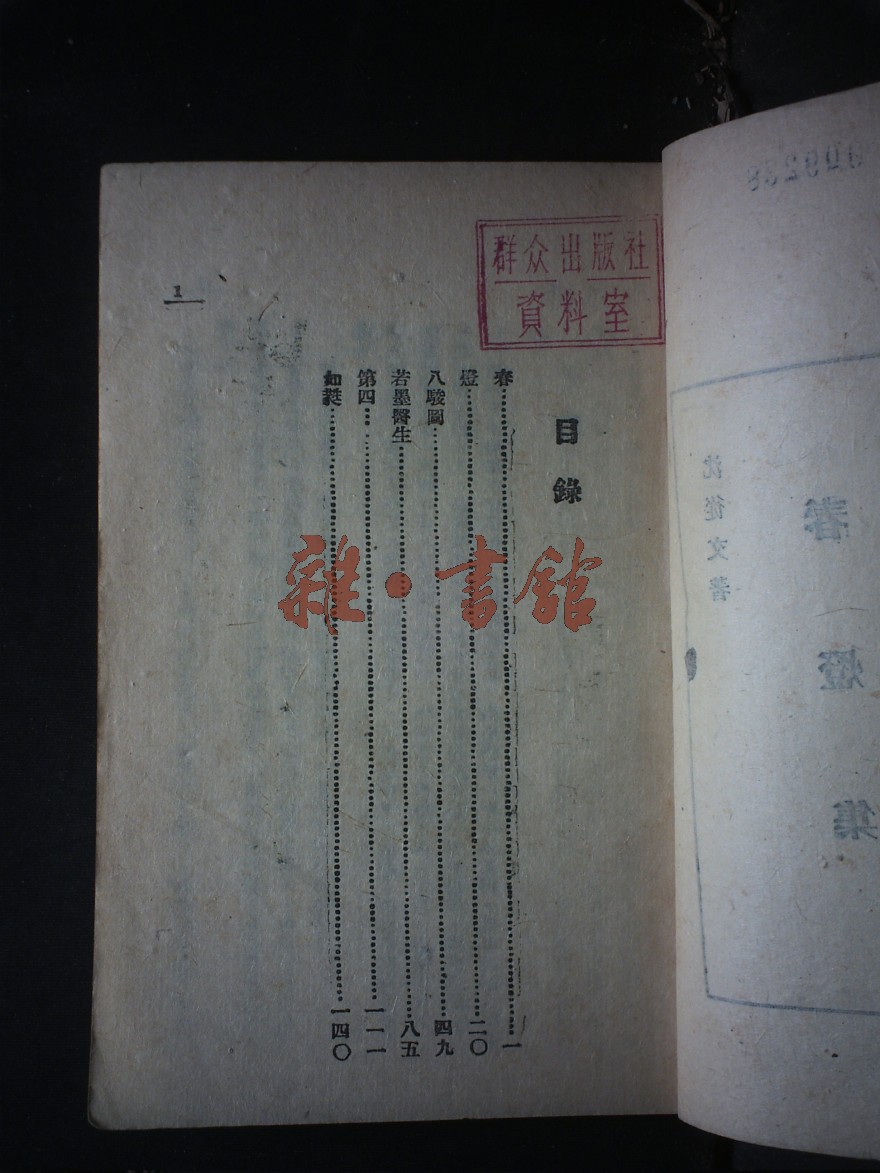 春燈集
沈從文著
群众出版社
資料室
目錄
春……一
燈……二〇
八駿圖……四九
若墨醫生……八五
第四……一一一
如蕤……一四〇
1
雜·書館